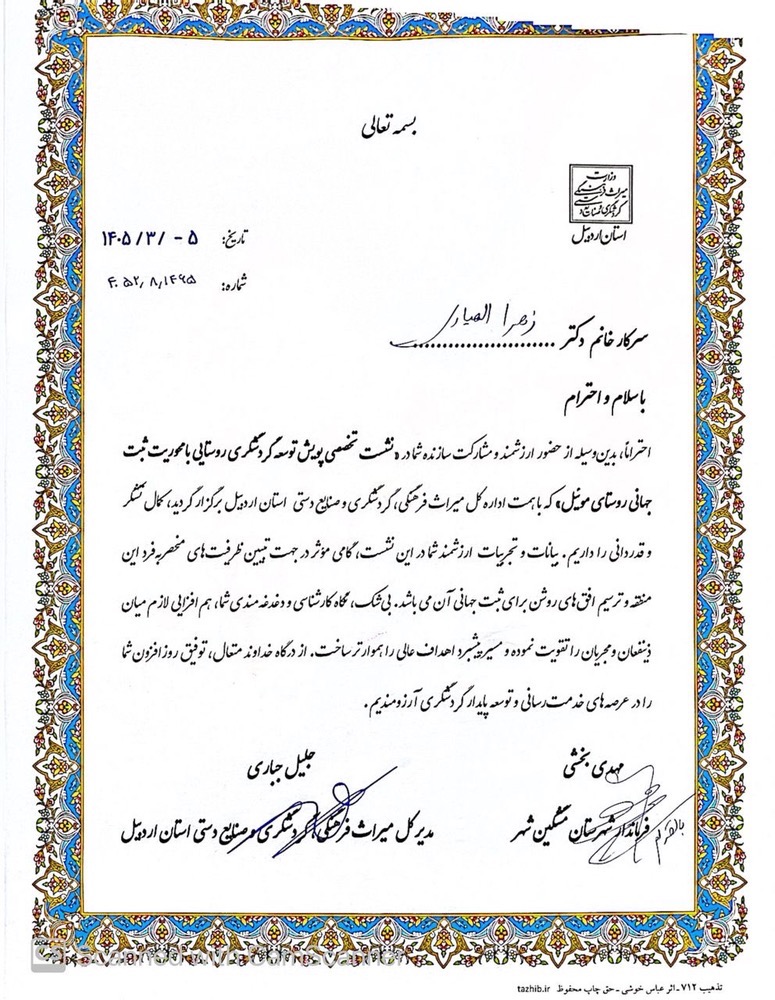 بسمه تعالی
وزارت
میراث فرهنگی
گردشگری و صنایع دستی
استان اردبیل
تاریخ: ۱۴۰۵/۳/ - ۵
شماره: ۴۰۵۲٫۸٫۱۴۶۵
سرکار خانم دکتر زهرا الهیاری
با سلام و احترام
احتراماً، بدین‌وسیله از حضور ارزشمند و مشارکت سازنده شما در «نشست تخصصی پویش توسعه گردشگری روستایی با محوریت ثبت
جهانی روستای موئیل» که با همت اداره کل میراث فرهنگی، گردشگری و صنایع دستی استان اردبیل برگزار گردید، کمال تشکر
و قدردانی را داریم. بیانات و تجربیات ارزشمند شما در این نشست، گامی مؤثر در جهت تبیین ظرفیت‌های منحصربه‌فرد این
منطقه و ترسیم افق‌های روشن برای ثبت جهانی آن می باشد. بی‌شک، نگاه کارشناسی و دغدغه‌مندی شما، هم افزایی لازم میان
ذینفعان و مجریان را تقویت نموده و مسیر پیشبرد اهداف عالی را هموارتر ساخت. از درگاه خداوند متعال، توفیق روزافزون شما
را در عرصه‌های خدمت‌رسانی و توسعه پایدار گردشگری آرزومندیم.
مهدی بخشی
فرماندار شهرستان مشگین شهر
جلیل جباری
مدیر کل میراث فرهنگی، گردشگری و صنایع دستی استان اردبیل
Scanned with CamScanner
تذهیب ۷۱۲ـ اثر عباس خوشی ـ حق چاپ محفوظ tazhib.ir